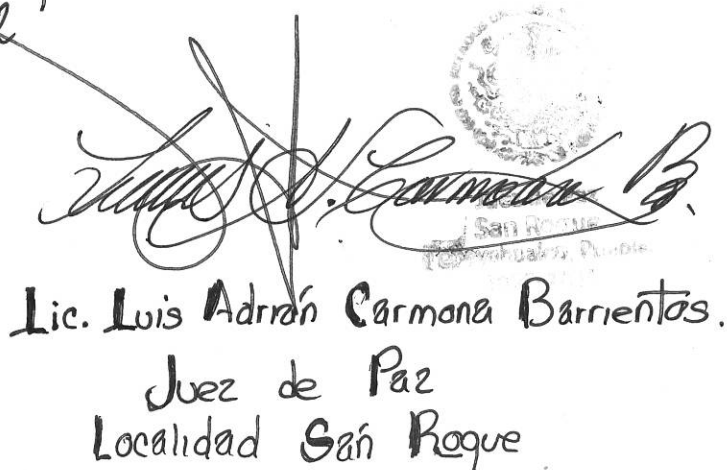 Luis A. Carmona B.
San Roque
Lic. Luis Adrián Carmona Barrientos.
Juez de Paz
Localidad San Roque